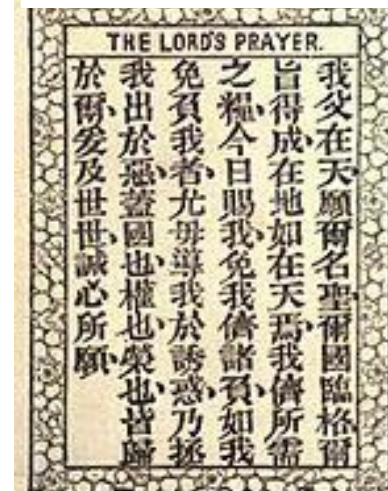 THE LORD'S PRAYER.
我父在天、願爾名聖、爾國臨格爾
旨得成在地如在天焉、我儕所需
之糧、今日賜我、免我儕諸負、如我
免負我者、尤毋導我於誘惑、乃拯
我出於惡、蓋國也、權也、榮也、皆歸
於爾、爰及世世、誠心所願、